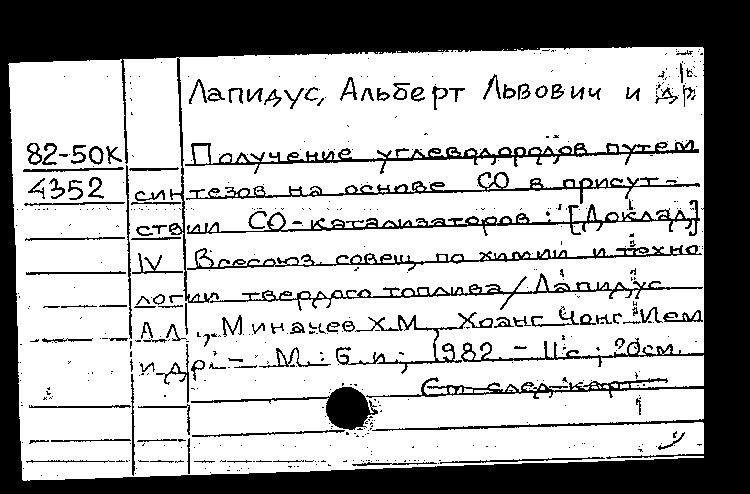 Лапидус, Альберт Львович и др
82-50К Получение углеводородов путем
4352 синтезов на основе СО в присут-
ствии СО-катализаторов : [Доклад]
IV Всесоюз. совещ. по химии и техно
логии твердого топлива / Лапидус
А.Л., Миначев Х.М., Хоанг Чонг Ием
и др. - М. : Б.и., 1982. - 11 с ; 20см.
См след карт